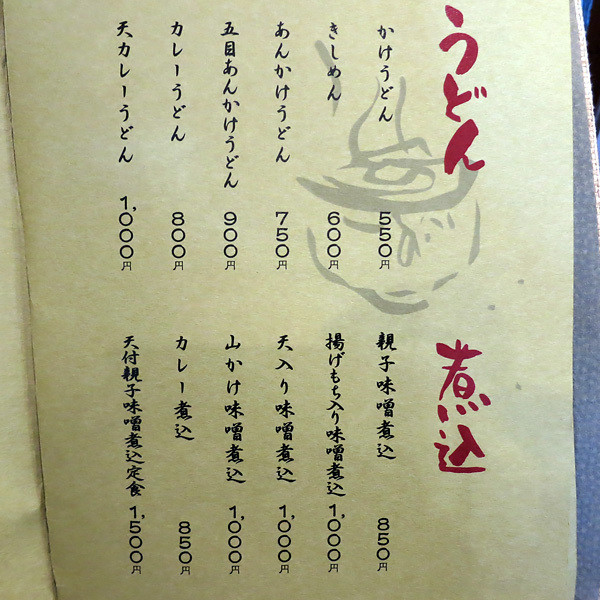 うどん
かけうどん 550円
きしめん 600円
あんかけうどん 750円
五目あんかけうどん 900円
カレーうどん 800円
天カレーうどん 1,000円
煮込
親子味噌煮込 850円
揚げもち入り味噌煮込 1,000円
天入り味噌煮込 1,000円
山かけ味噌煮込 1,000円
カレー煮込 850円
天付親子味噌煮込定食 1,500円